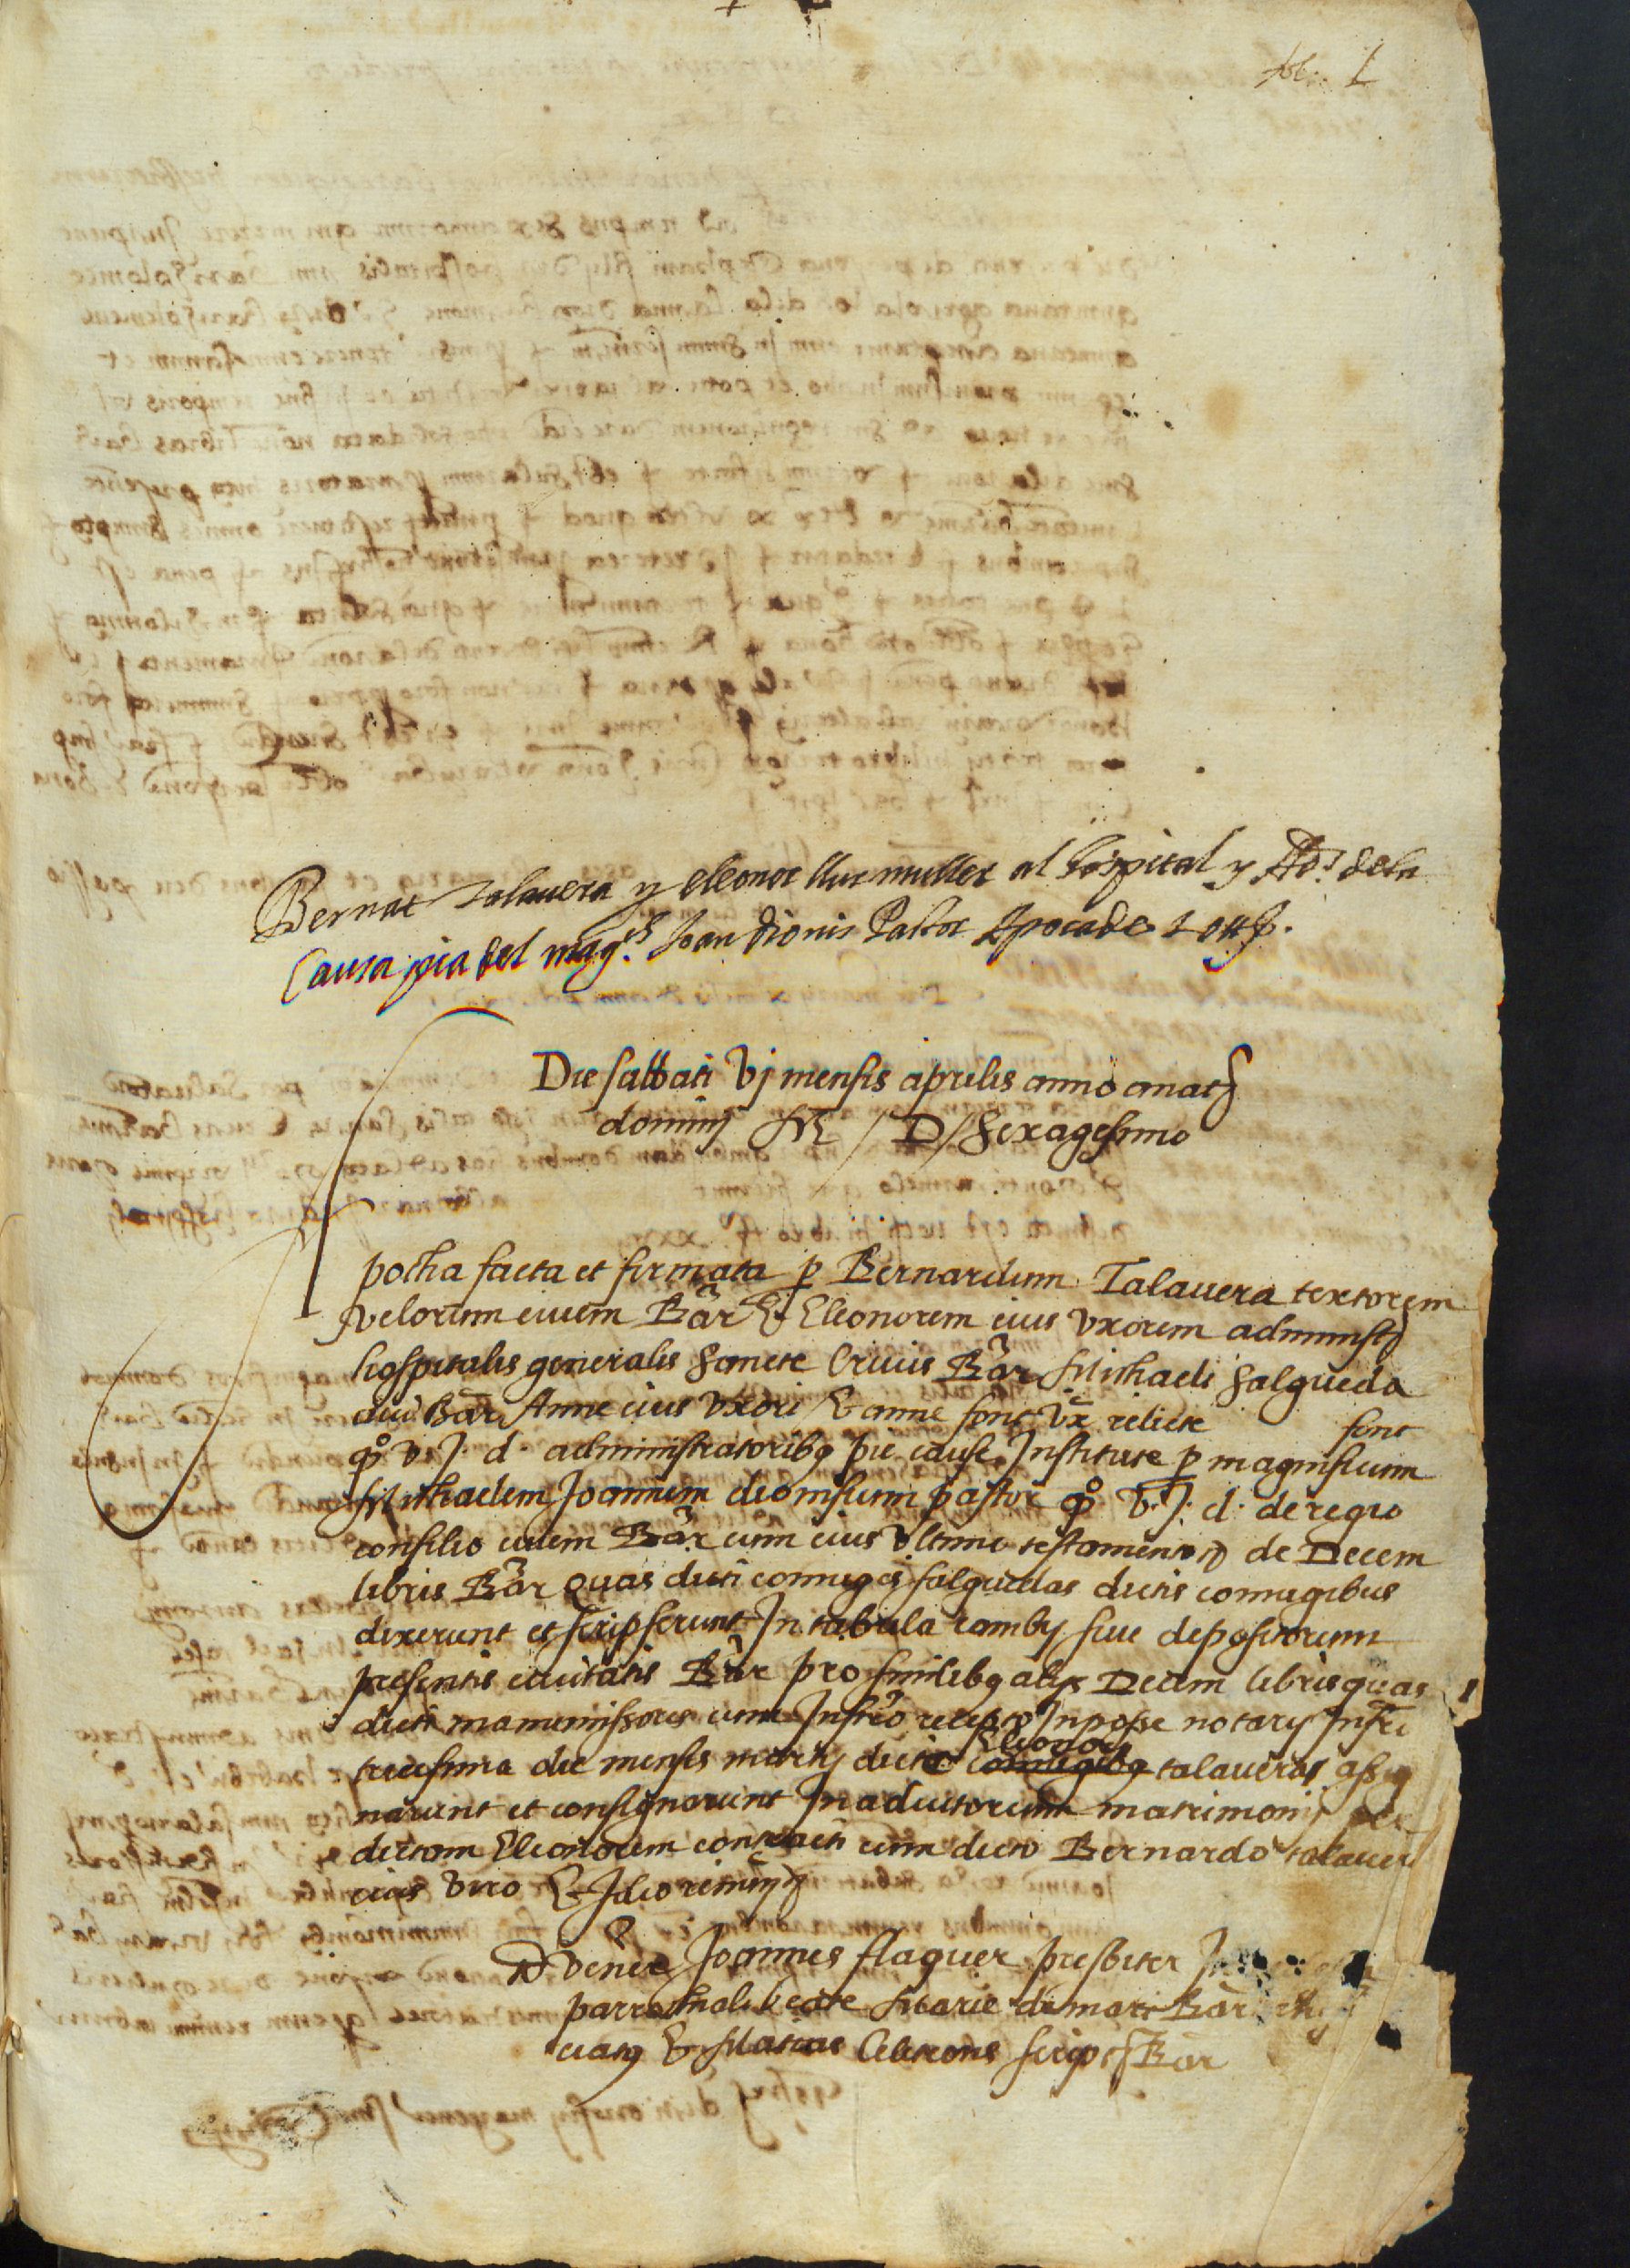 fol. 1
Bernat Talavera y Eleonor sa muller al hospital y Adors dela
Causa pia del magch Joan Dionis Pastor Apoca de 10 ll ss.
Die sabbati vj mensis aprilis anno a nate
dominj M / D / sexagesimo
Apocha facta et firmata per Bernardum Talavera textorem
velorum civem Bar et Eleonorem eius uxorem administr
hospitalis generalis sancte Crucis Bar Michaeli Salgueda
civi Bar Anne eius uxori et anne font ux relicte font
qo v. J. d. administratoribq pie cause Institute p magnificum
Michaelem Joannem dionisium pastor qo v. J. d. de regio
consilio civem Bar cum eius ultimo testamento de Decem
libris Bar Quas dicti coniuges salguedas dictis coniugibus
dixerunt et scripserunt In tabula cambij sive depositorum
presentis civitatis Bar pro similibq alijs Decem libris quas
dicti manumissores cum Instro recepto In posse notarij Infri
tricesima die mensis martij dicte Eleonori coniugibq talaveras assig
narunt et consignarunt In adiutorium matrimonij per
dictam Eleonorem contracti cum dicto Bernardo talaver
eius viro Et Ideo
venle Joannes flaquer presbiter
parrochiali beate Marie de mari Bar
Et Matias Celtrons scriptr Bar